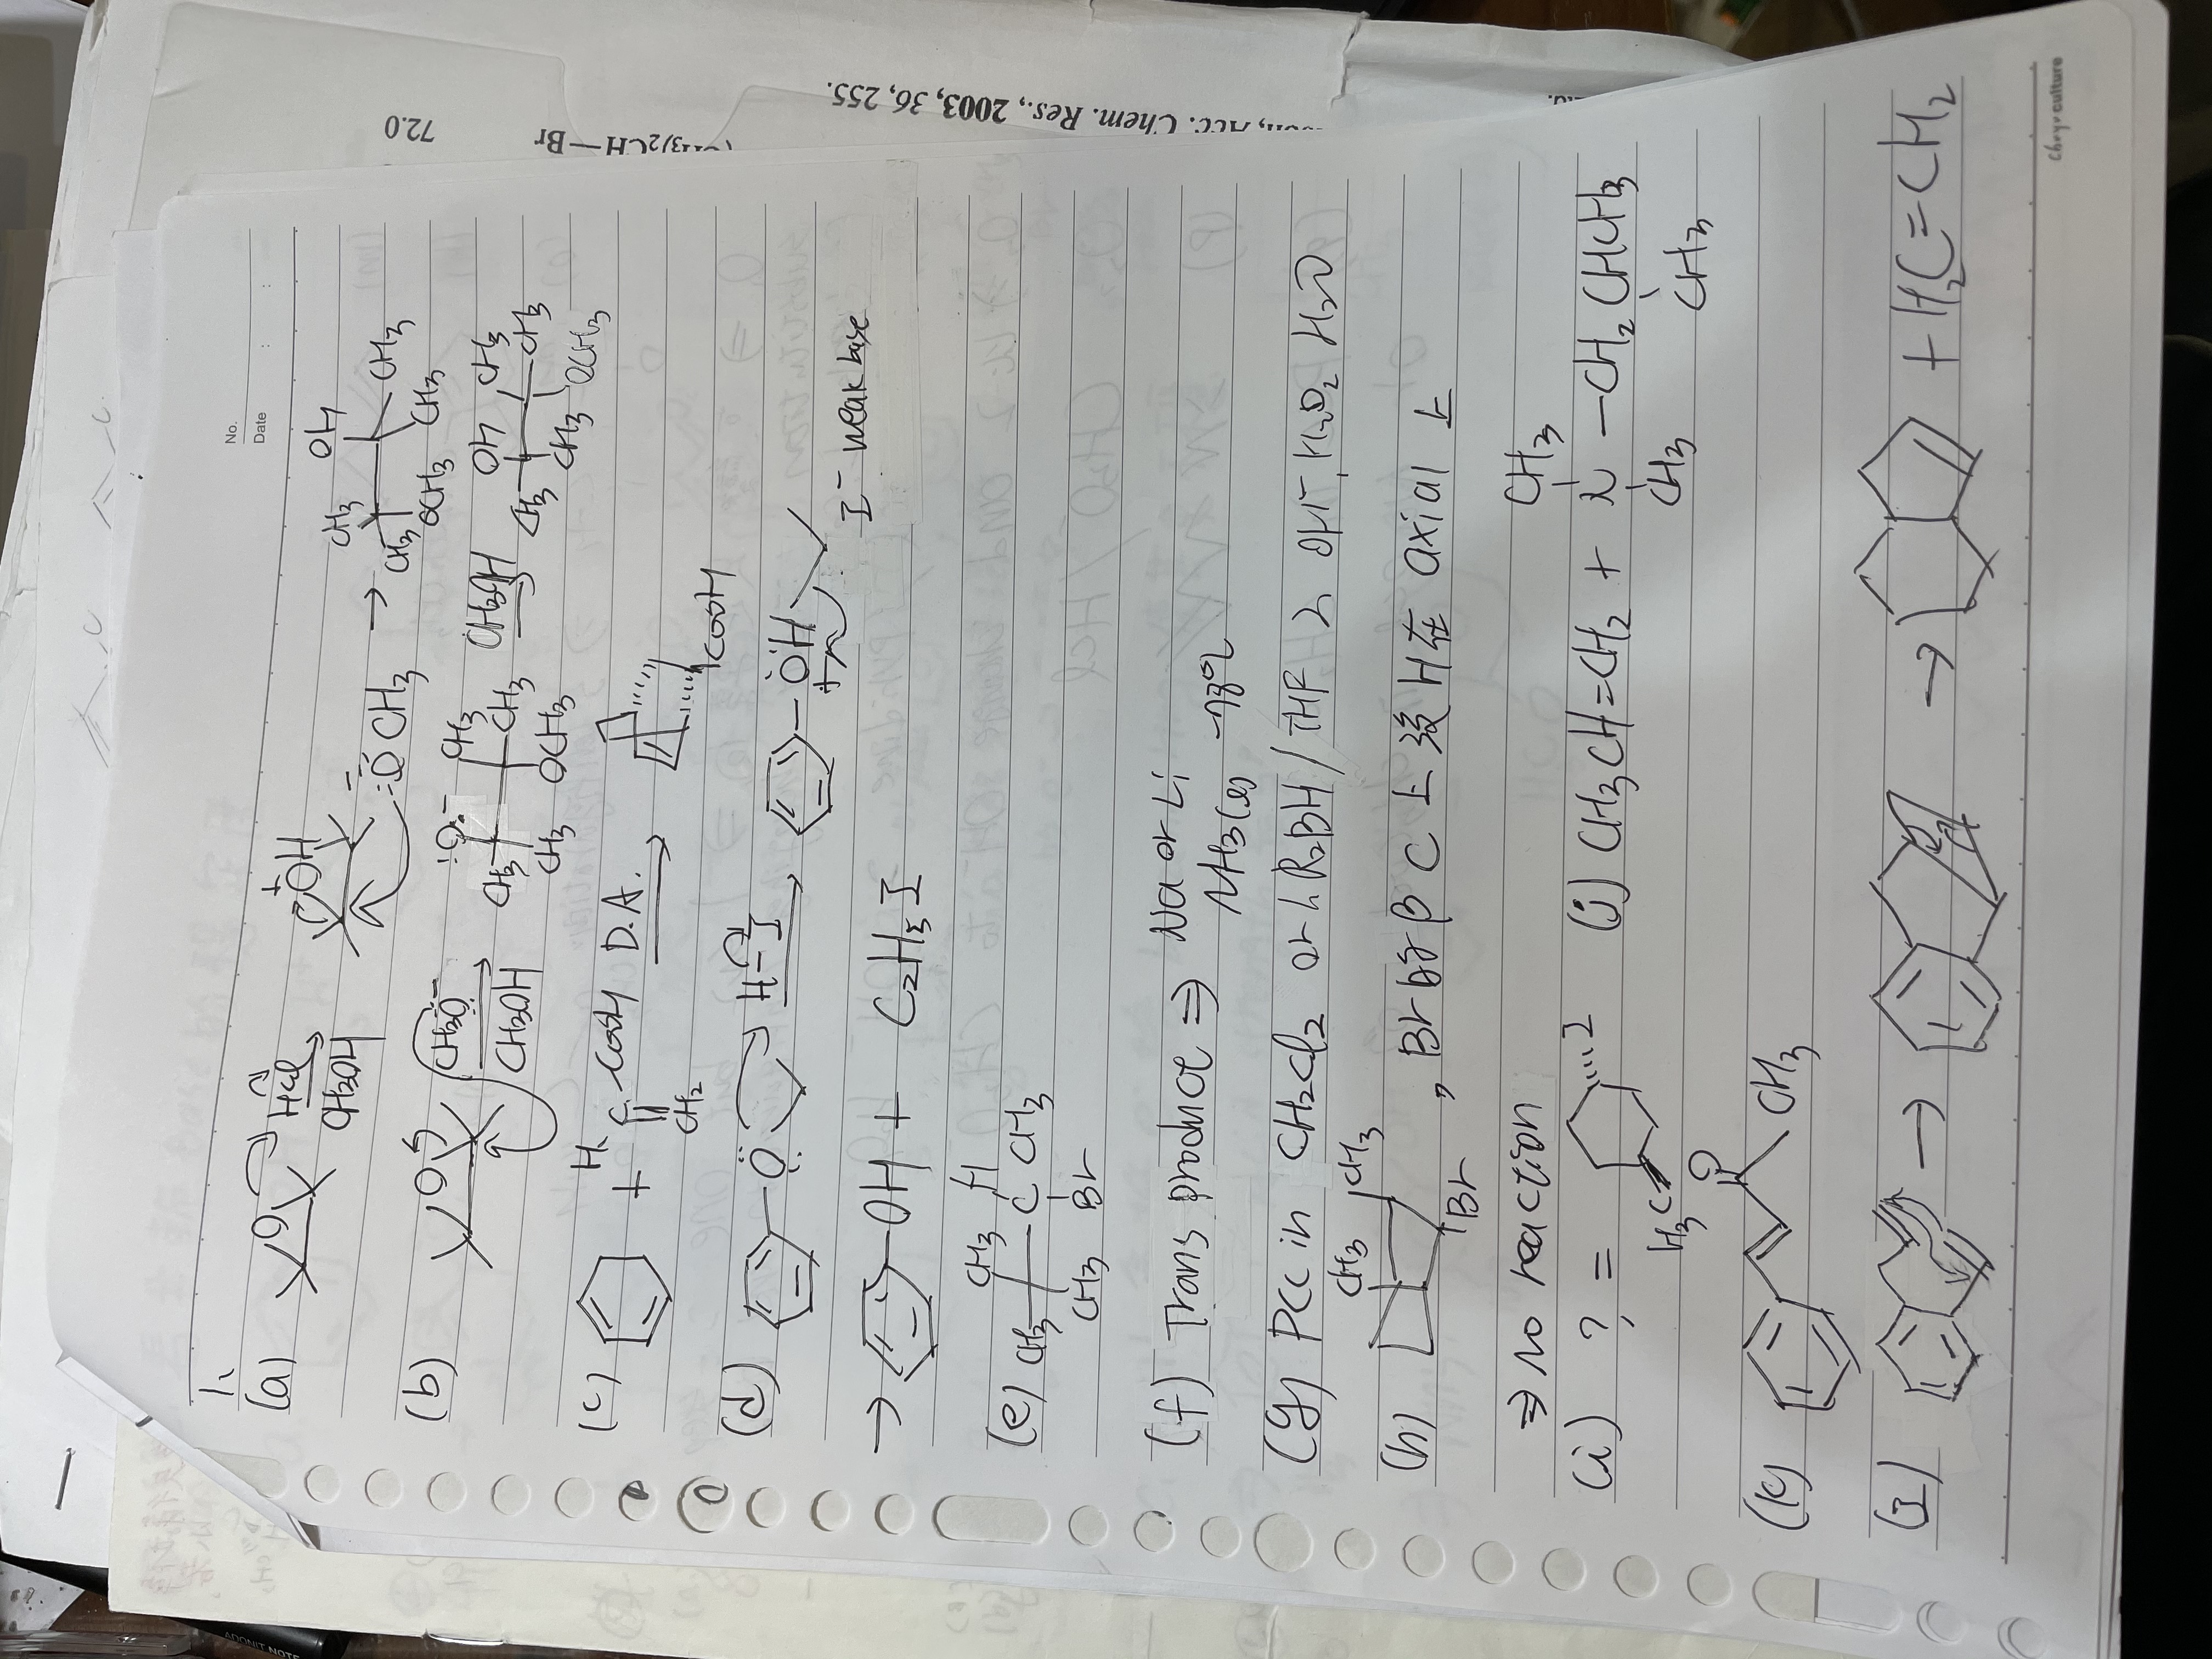 No.
Date : :
1、
(a) O HCl CH3OH
+ OH
:Ö CH3 → CH3 OH CH3 CH3 OCH3 CH3
(b) O CH3O:⁻ CH3OH
:O:⁻ CH3 CH3 CH3 CH3 OCH3
CH3OH
OH CH3 CH3 CH3 CH3 OCH3
(c) + H C COOH CH2 D.A. COOH
(d) O H-I OH + I⁻ weak base
→ OH + C2H5I
(e) CH3 H CH3 C CH3 CH3 Br
(f) Trans produce ⇒ Na or Li NH3(l) -78℃
(g) PCC in CH2Cl2 or 1、R2BH / THF 2、OH⁻, H2O2 H2O
(h) CH3 CH3 Br , Br的 β C 上 H在 axial 上
⇒ No reaction
(i) ? = I H3C
(j) CH3CH=CH2 + CH3 N CH3 -CH2CHCH3 CH3
(k) O CH3
(I) → → + H2C=CH2
Chry culture
72.0
)2CH—Br
Acc. Chem. Res., 2003, 36, 255.